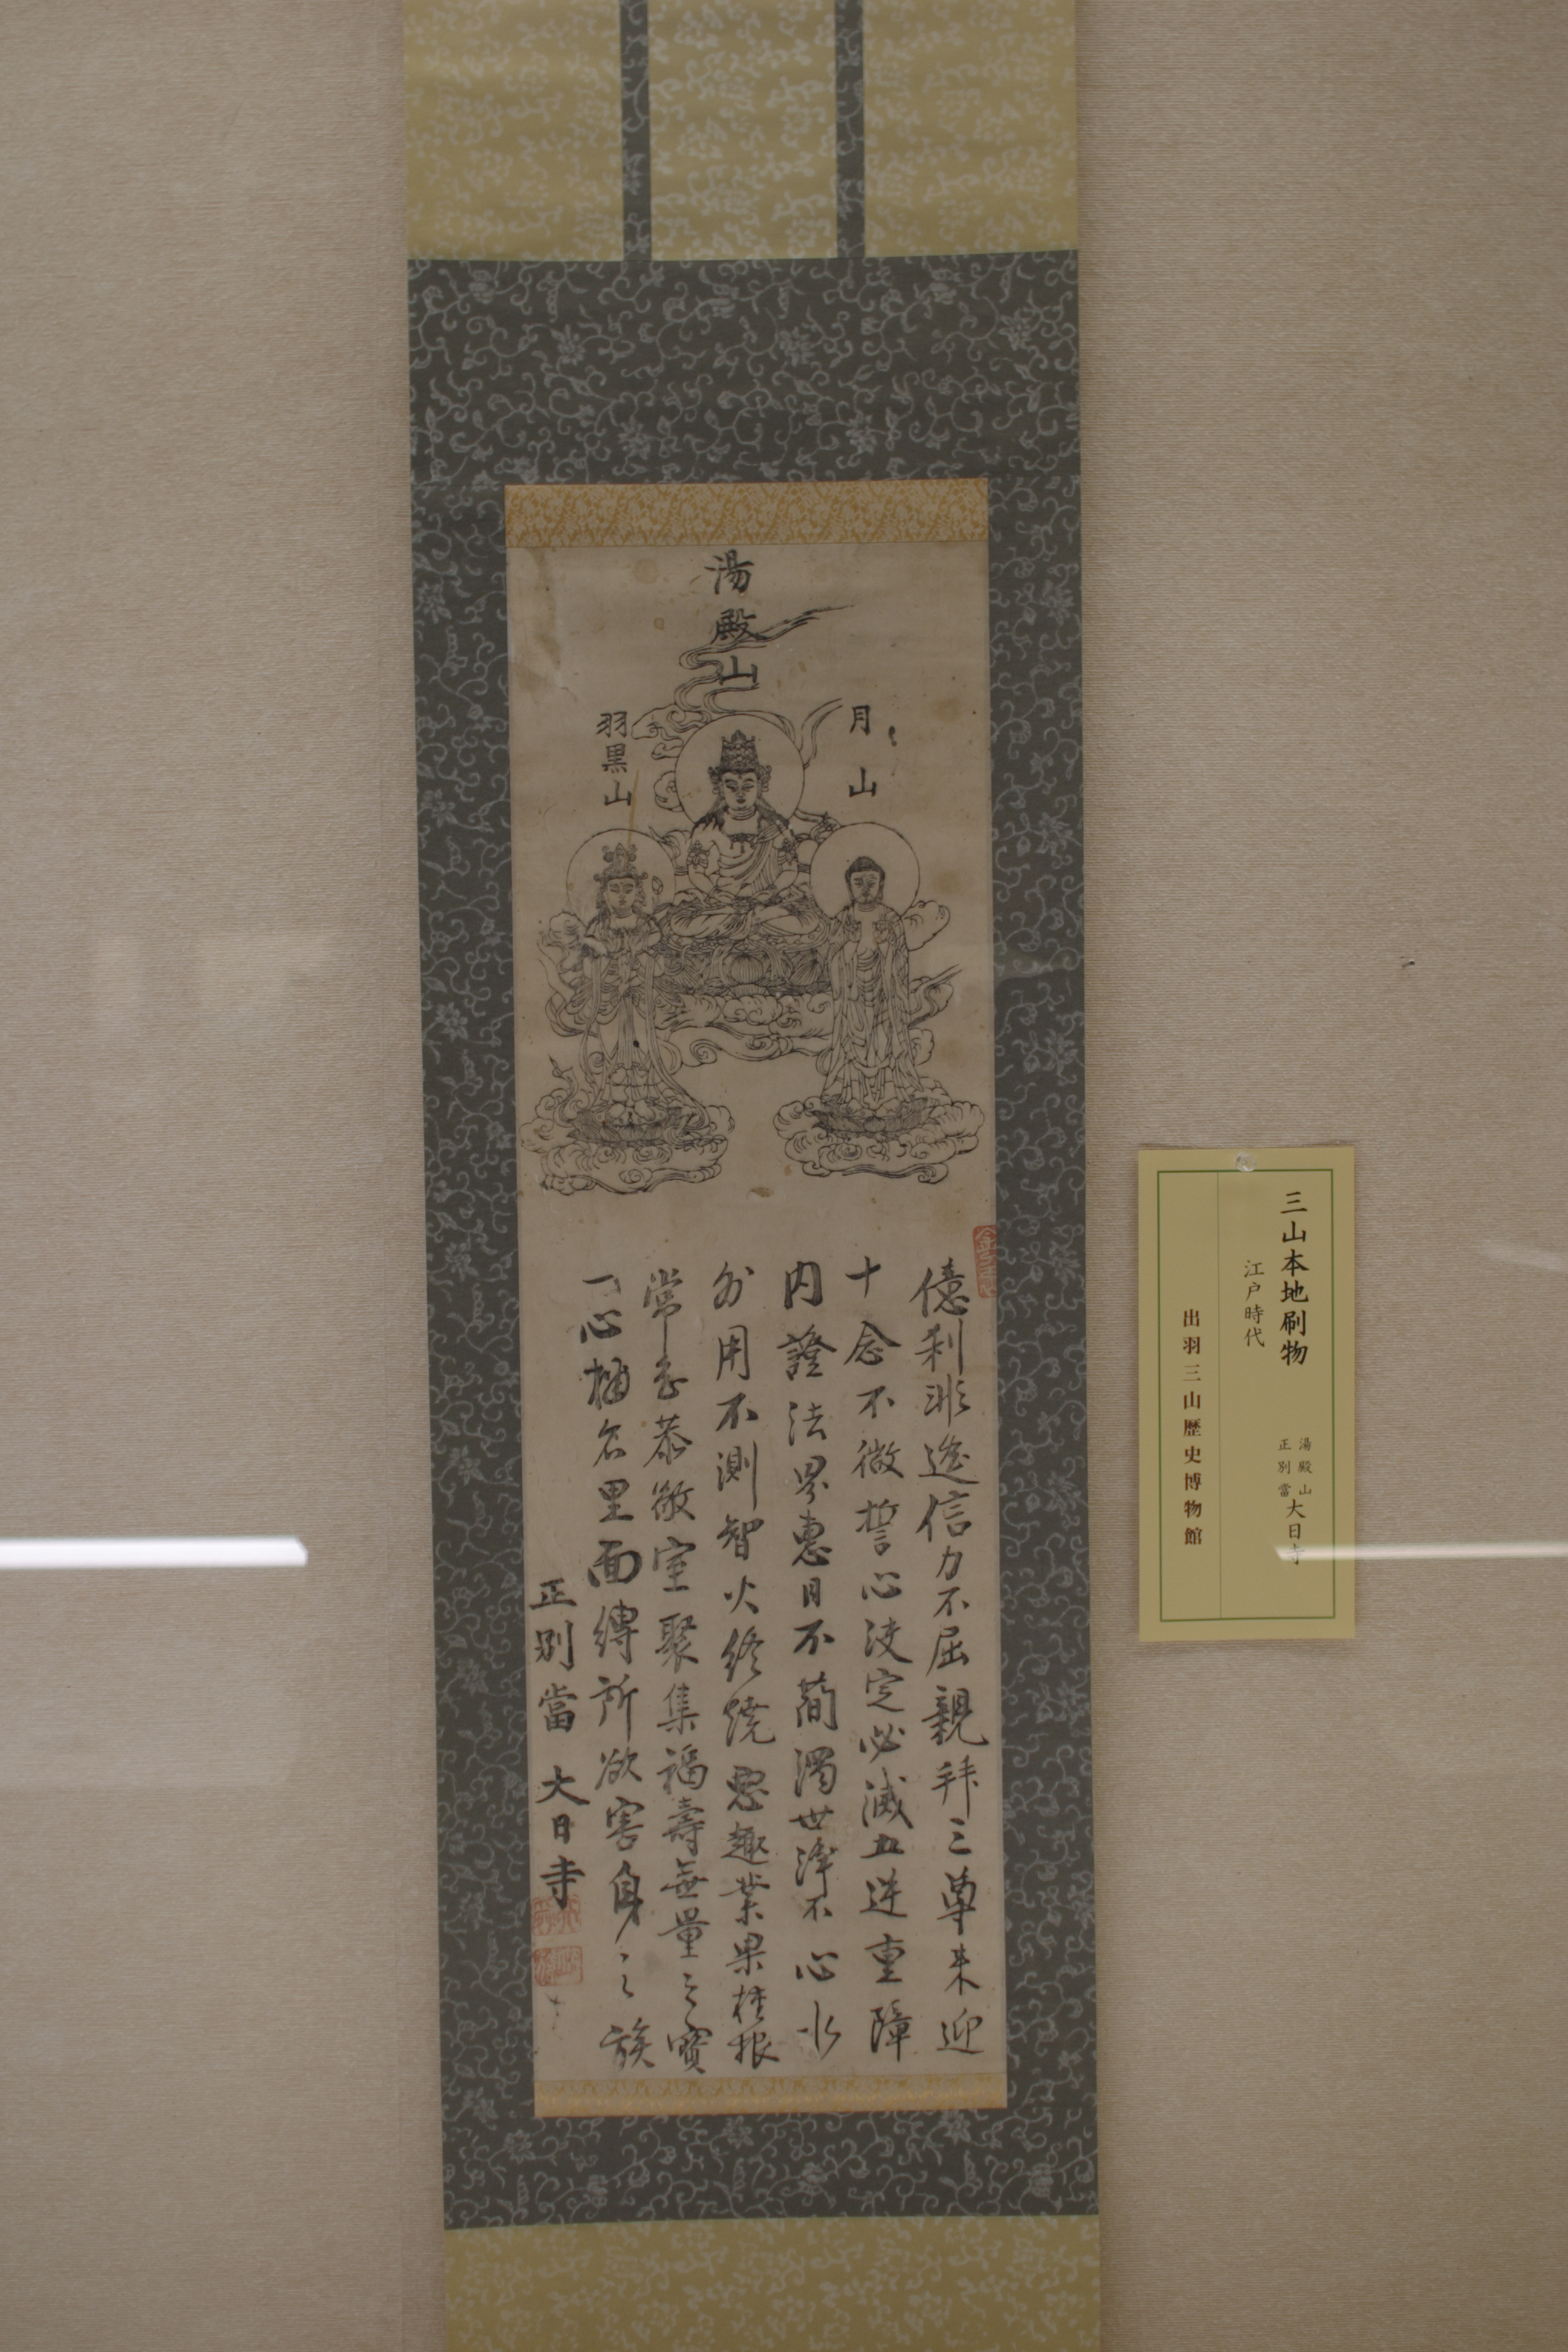 湯殿山
月山
羽黒山
億刹非遙信力不屈親拜三尊来迎
十念不微誓心決定必滅五逆重障
内證法界恵日不蘭濁世浄不心水
外用不測智火終焼悪趣業果枝根
常恭敬室聚集福壽無量之寶
一心稱名里面縛所欲害身之族
正別當 大日寺
三山本地刷物
湯殿山
正別當
大日寺
江戸時代
出羽三山歴史博物館